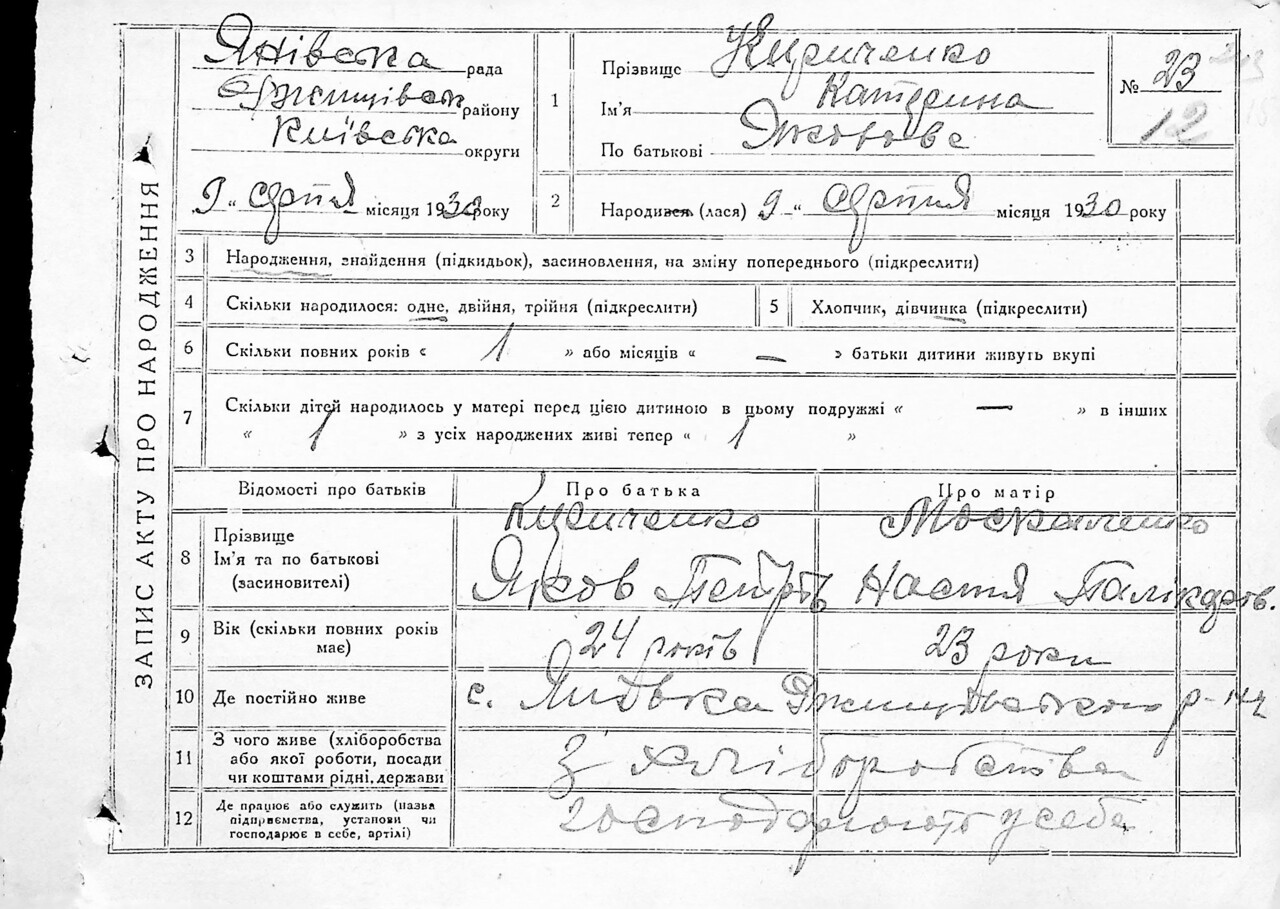 ЗАПИС АКТУ ПРО НАРОДЖЕННЯ
Янівська рада
Ржищівськ району
Київська округи
9 „ серпня місяця 1930 року
1
Прізвище Кириченко
Ім'я Катерина
По батькові Яковова
№ 23
12
2
Народився (лася) 9 „ серпня місяця 1930 року
3 Народження, знайдення (підкидьок), засиновлення, на зміну попереднього (підкреслити)
4 Скільки народилося: одне, двійня, трійня (підкреслити)
5 Хлопчик, дівчинка (підкреслити)
6 Скільки повних років « 1 » або місяців « — » батьки дитини живуть вкупі
7 Скільки дітей народилось у матері перед цією дитиною в цьому подружжі « — » в інших
« 1 » з усіх народжених живі тепер « 1 »
Відомості про батьків
Про батька
Про матір
8 Прізвище
Ім'я та по батькові
(засиновителі)
Кириченко
Яков Петров
Москаленко
Настя
9 Вік (скільки повних років
має)
24 років
23 роки
10 Де постійно живе
с. Янівка Ржищівського р-ну
11 З чого живе (хліборобства
або якої роботи, посади
чи коштами рідні, держави
З хліборобства
12 Де працює або служить (назва
підприємства, установи чи
господарює в себе, артілі)
господарюють у себе